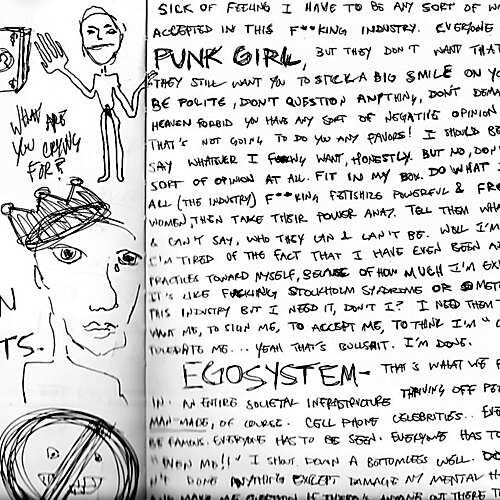 WHAT ARE
YOU CRYING
FOR?
N
TS.
SICK OF FEELING I HAVE TO BE ANY SORT OF W
ACCEPTED IN THIS F**KING INDUSTRY. EVERYONE
PUNK GIRL, BUT THEY DON'T WANT THAT
THEY STILL WANT YOU TO STICK A BIG SMILE ON YO
BE POLITE, DON'T QUESTION ANYTHING, DON'T DEMA
HEAVEN FORBID YOU HAVE ANY SORT OF NEGATIVE OPINION
THAT'S NOT GOING TO DO YOU ANY FAVORS! I SHOULD BE
SAY WHATEVER I WANT, HONESTLY. BUT NO, DON'
SORT OF OPINION AT ALL. FIT IN MY BOX. DO WHAT I
ALL (THE INDUSTRY) F**KING FETISHIZE POWERFUL & FR
WOMEN, THEN TAKE THEIR POWER AWAY. TELL THEM WHA
& CAN'T SAY, WHO THEY CAN & CAN'T BE. WELL I'M
I'M TIRED OF THE FACT THAT I HAVE EVEN BEEN
PRACTICES TOWARD MYSELF, BECAUSE OF HOW MUCH I'M EX
IT'S LIKE FUCKING STOCKHOLM SYNDROME OR SOMET
THIS INDUSTRY BUT I NEED IT, DON'T I? I NEED THEM T
WANT ME, TO SIGN ME, TO ACCEPT ME, TO THINK I'M "C
TOLERATE ME... YEAH THAT'S BULLSHIT. I'M DONE.
EGOSYSTEM- THAT'S WHAT WE
IN. AN ENTIRE SOCIETAL INFRASTRUCTURE THRIVING OFF PE
MAN MADE, OF COURSE. CELL PHONE CELEBRITIES.. EVE
BE FAMOUS. EVERYONE HAS TO BE SEEN. EVERYONE HAS TO
ME!!" I SHOUT DOWN A BOTTOMLESS WELL. DO
DONE ANYTHING EXCEPT DAMAGE MY MENTAL H
AND MAKE ME QUESTION IS THERE ANYONE OUT THERE